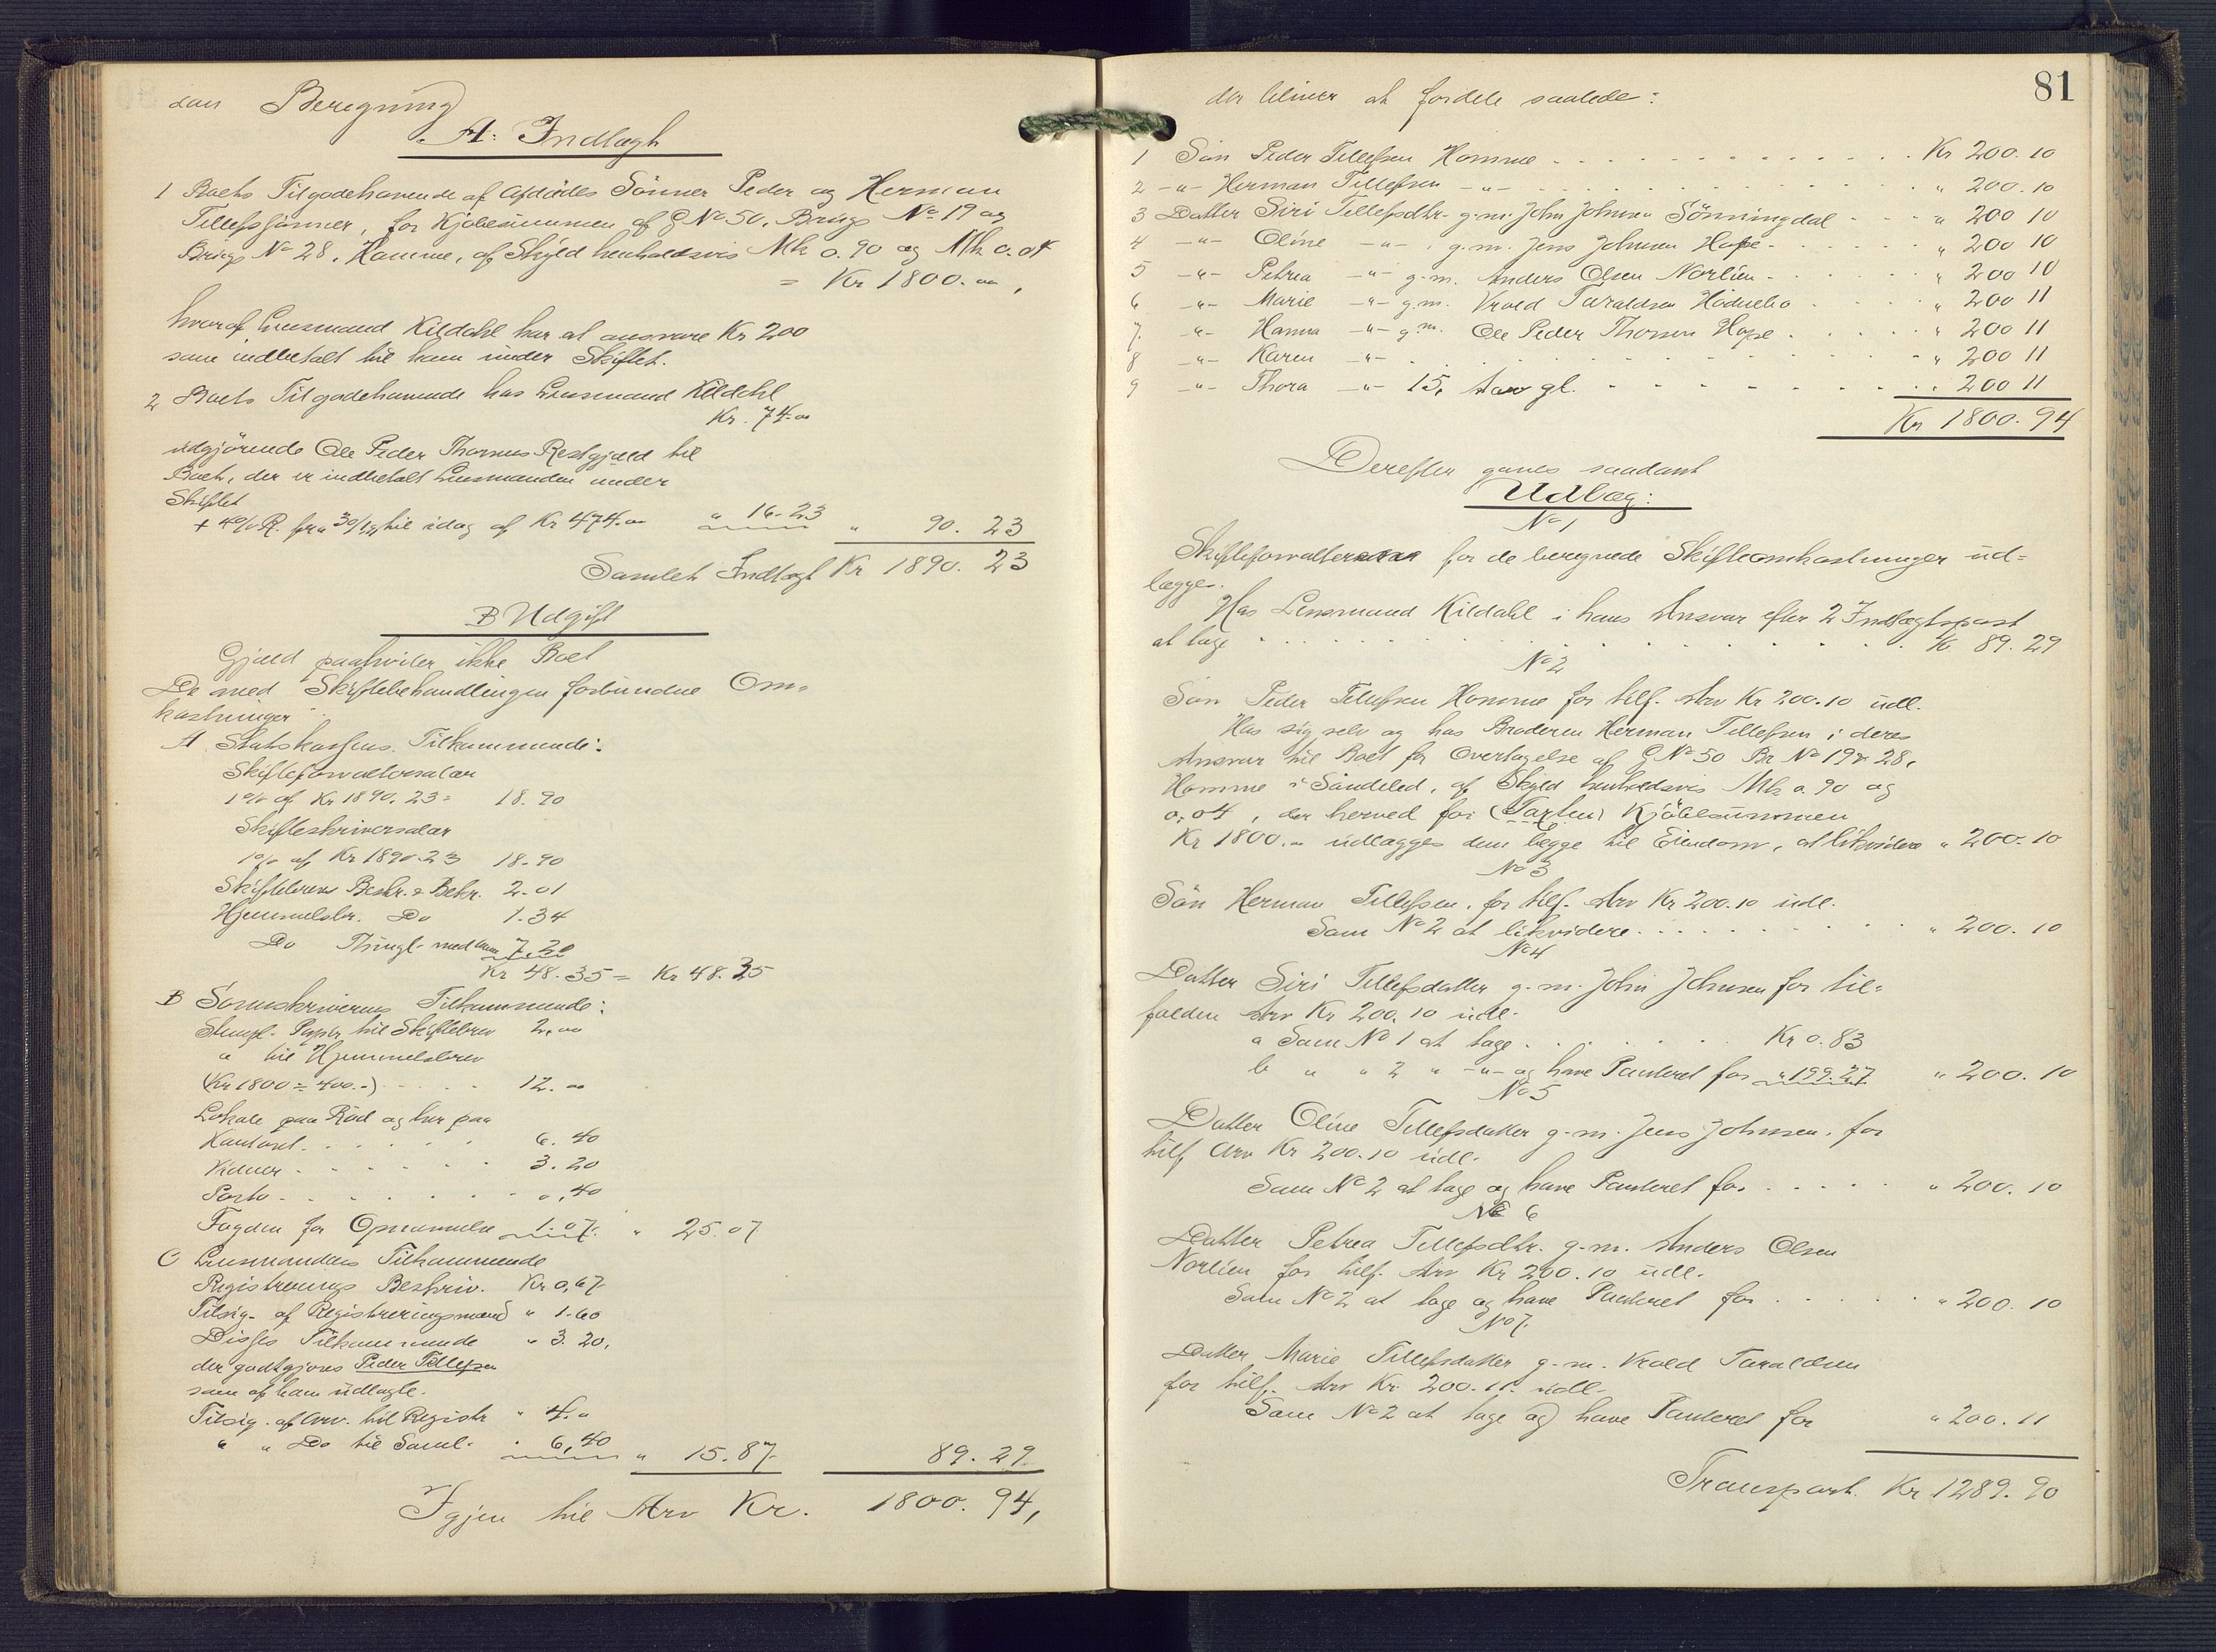 dan Beregning
A: Indlægt
1 Boets Tilgodehavende af Afdødes Sønner Peder og Herman
Tellefssønner, for Kjøbesummen af G No 50, Brugs No 19 og
Brugs No 28, Homme, af Skyld henholdsvis Mk 0.90 og Mk 0.04
= Kr 1800.00,
hvoraf Lensmand Kildahl har at ansvare Kr 200
som indbetalt til ham under Skiftet.
2 Boets Tilgodehavende hos Lensmand Kildahl
Kr. 74.00
udgjørende Ole Peder Thorsens Restgjæld til
Boet, der er indbetalt Lensmanden under
Skiftet
+ 4% R. fra til idag af Kr 474.00 " 16.23 " 90. 23
Samlet Indtægt Kr 1890. 23
B Udgift
Gjæld paahviler ikke Boet
De med Skiftebehandlingen forbundne Om-
kostninger:
A. Statskassens Tilkommende:
Skifteforvaltersalær
1% af Kr 1890.23 = 18.90
Skifteskriversalær
1% af Kr 1890.23 18.90
Skiftebrev Beskr. & Bekr. 2.01
Hjemmelsbr. Do 1.34
Do Thingl. 7.20
Kr 48.35 = Kr 48.35
B Sorenskriverens Tilkommende:
Stempl. Papir til Skiftebrev 2.00
" til Hjemmelsbrev
(Kr 1800 ÷ 400.-) 12.00
Lokale paa Röd og her paa
Kontoret 6.40
Vidner 3.20
Porto 0,40
Fogden for Opnævnelse 1.07. " 25.07
C Lensmandens Tilkommende
Registrerings Beskriv. Kr 0,67
Tilsig. af Registreringsmænd " 1.60
Disses Tilkommende " 3.20,
der godtgjøres Peder Tellefsen
som af ham udlagte.
Tilsig. af Arv. til Registr " 4."
" " Do til Saml. " 6,40 " 15.87 89.29
Igjen til Arv Kr. 1800.94,
81
der bliver at fordele saaledes:
1 Søn Peder Tellefsen Homme Kr 200.10
2 -"- Herman Tellefsen -"- " 200.10
3 Datter Siri Tellefsdtr. g.m. John Johnsen Sønningdal " 200 10
4 -"- Oline -"- g.m. Jens Johnsen Hope " 200 10
5 -"- Petrea -"- g.m. Anders Olsen Norlien " 200 10
6 -"- Marie -"- g.m. Vrold Taraldsen " 200 11
7. -"- Hanna -"- g.m. Ole Peder Thorsen Hope " 200 11
8 -"- Karen -"- " 200 11
9 -"- Thora -"- 15, Aar gl. " 200 11
Kr 1800.94
Derefter gjøres saadant
Udlæg:
No 1
Skifteforvalteren for de beregnede Skifteomkostninger ud-
lægges.
Hos Lensmand Kildahl i hans Ansvar efter 2 Indtægtspost
at tage K 89.29
No 2
Søn Peder Tellefsen Homme for tilf. Arv Kr 200.10 udl.
Hos sig selv og hos Broderen Herman Tellefsen i deres
Ansvar til Boet for Overtagelse af G No 50 Br No 19 & 28,
Homme i Søndeled, af Skyld henholdsvis Mk 0.90 og
0,04, der herved for (Taxten) Kjøbesummen
Kr 1800.- udlægges dem begge til Eiendom, at likvidere " 200.10
No 3
Søn Herman Tellefsen, for tilf. Arv Kr 200.10 udl.
Som No 2 at likvidere " 200.10
No 4
Datter Siri Tellefsdatter g.m. John Johnsen for til-
falden Arv Kr 200.10 udl.
a Som No 1 at tage Kr 0.83
b " " 2 " -"- og have Panteret for " 199.27 " 200.10
No 5
Datter Oline Tellefsdatter g.m. Jens Johnsen, for
tilf Arv Kr 200.10 udl.
Som No 2 at tage og have Panteret for " 200.10
No 6
Datter Petrea Tellefsdtr. g.m. Anders Olsen
Norlien for tilf. Arv Kr 200.10 udl.
Som No 2 at tage og have Panteret for " 200.10
No 7.
Datter Marie Tellefsdatter g.m. Vrold Taraldsen
for tilf. Arv Kr 200.11 udl.
Som No 2 at tage og have Panteret for " 200.11
Transport Kr 1289.90